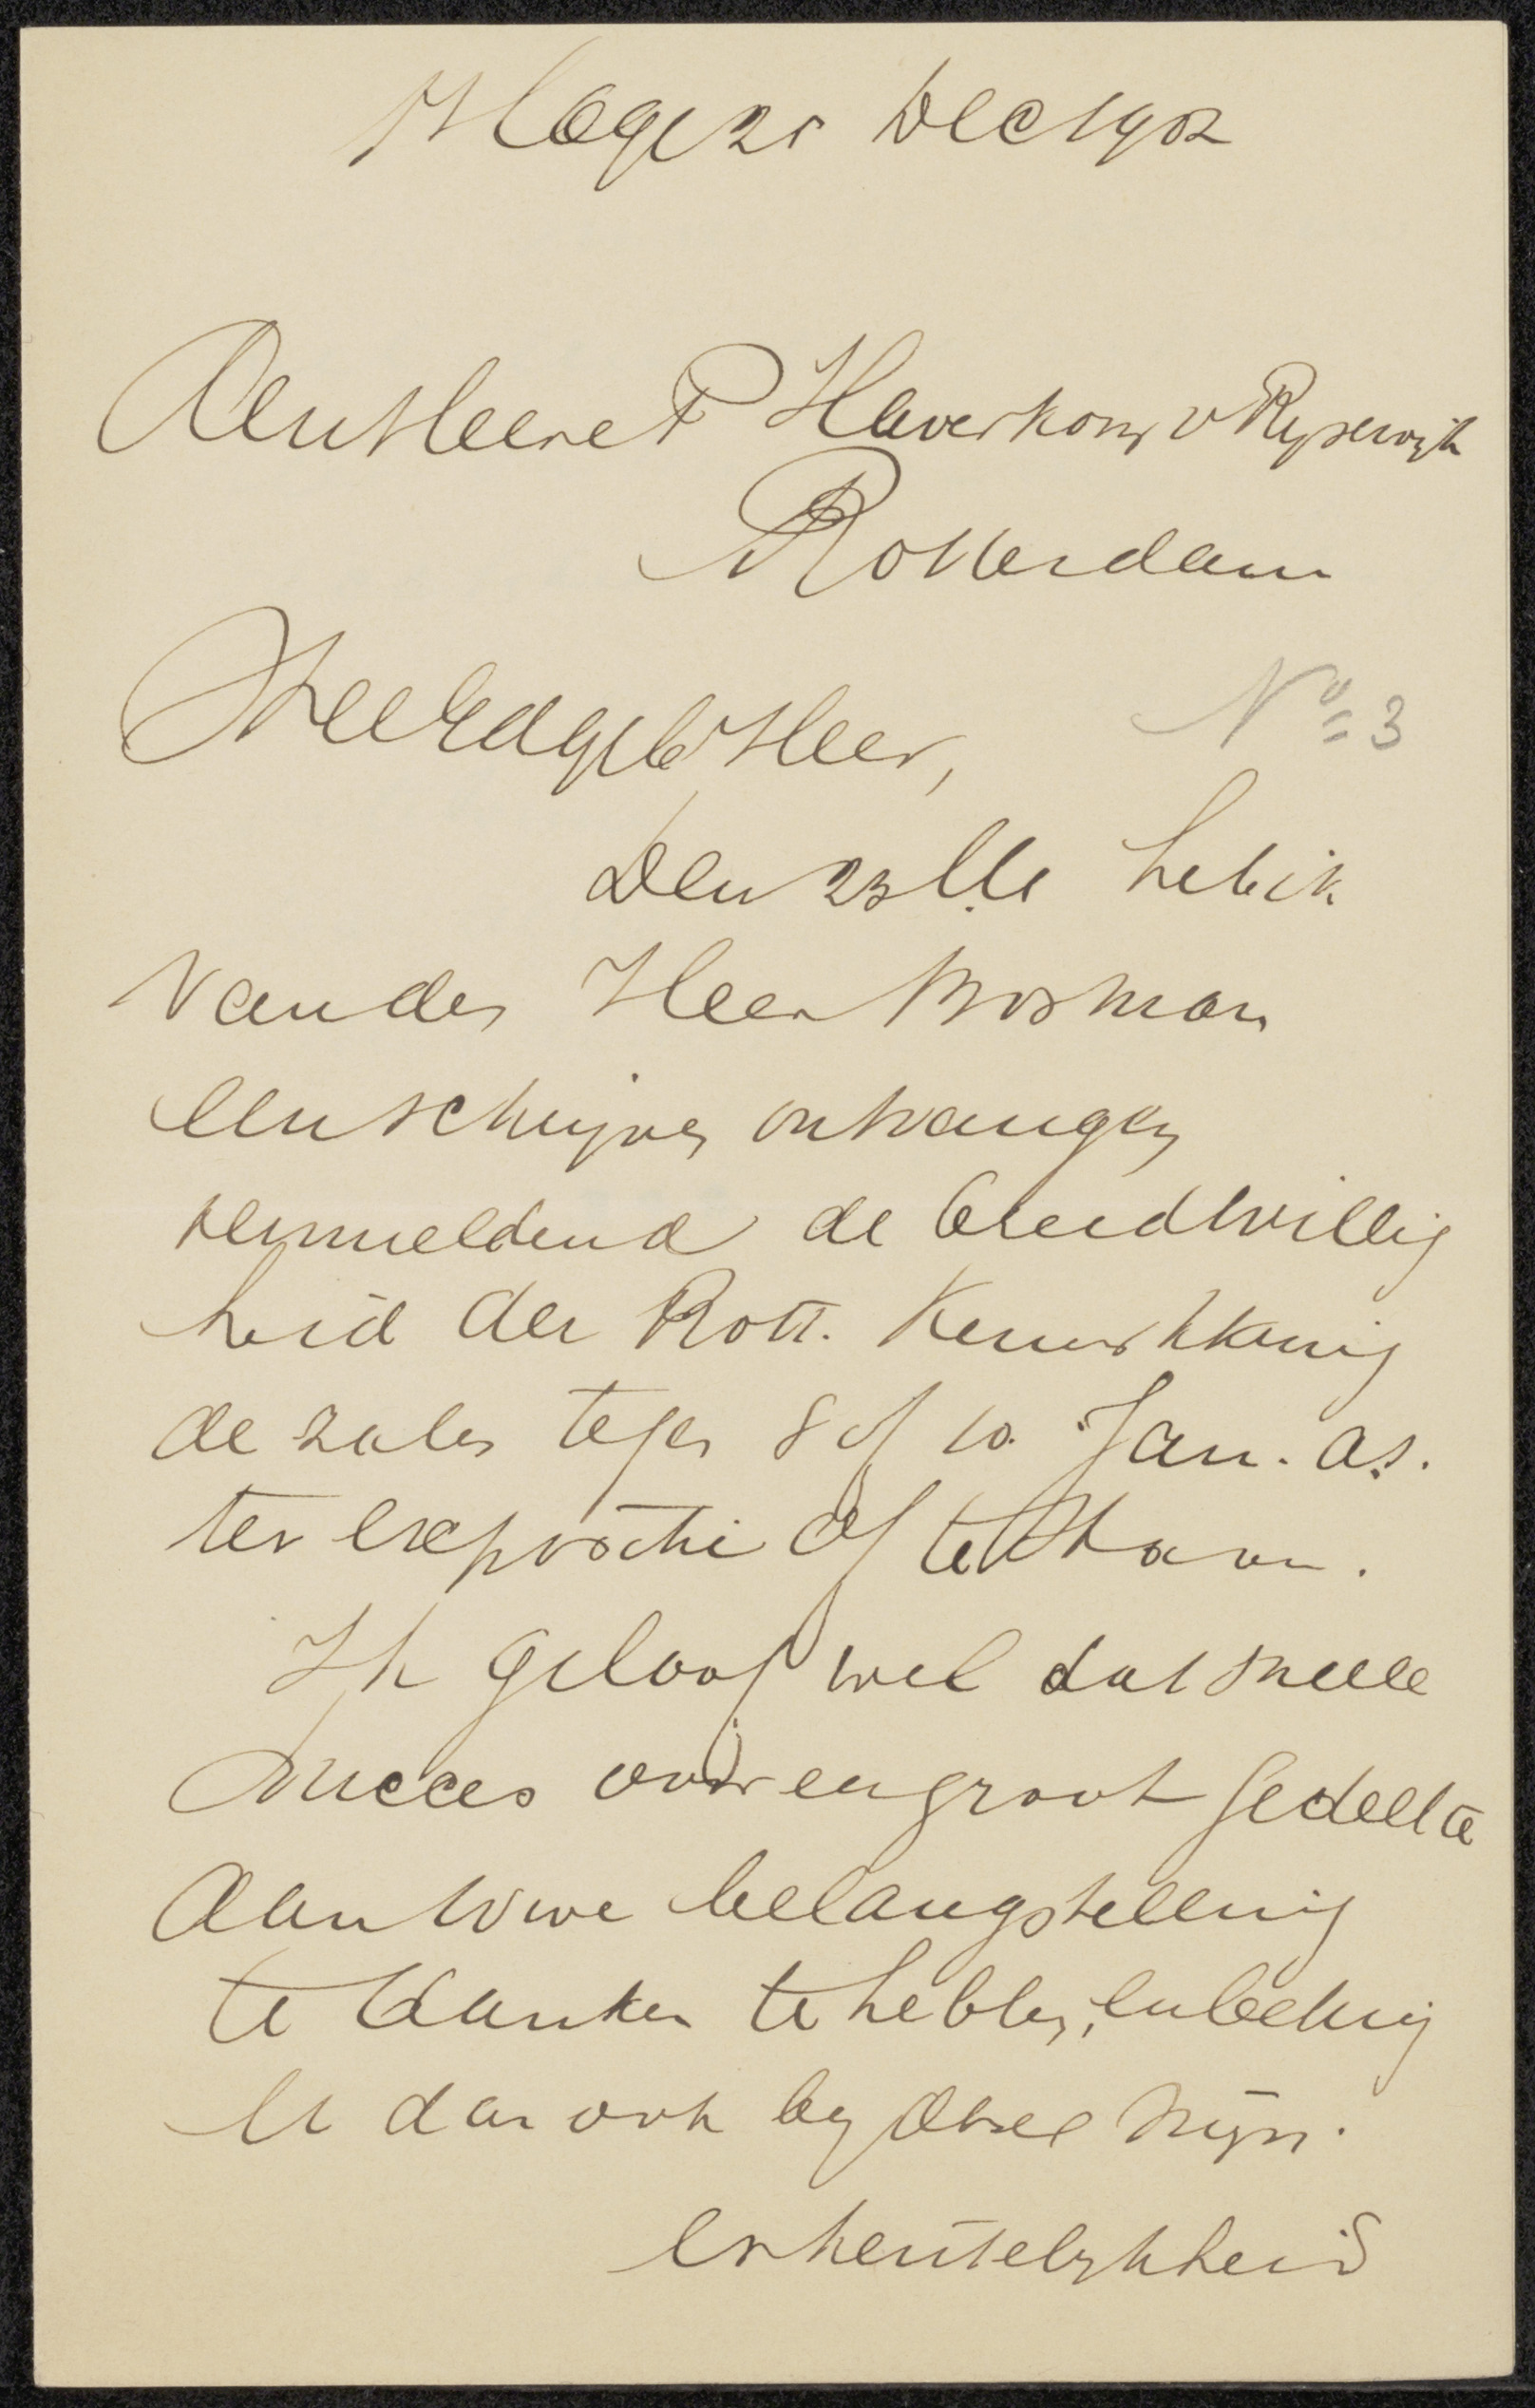 's Hage 25 Dec 1902
Den Heere P Haverkorn v Rijsewijk
Rotterdam
WelEdgeb Heer,
No 3
Den 23ste heb ik
van den Heer Bosman
een schrijven ontvangen
vermeldend de bereidwillig
heid der Rott. Kunstkring
de zalen tegen 8 of 10 Jan. a.s.
ter expositie af te staan.
Ik geloof wel dat snelle
succes voor een groot gedeelte
aan Uwe belangstelling
te danken te hebben, en betuig
U dan ook bij deze mijn
erkentelijkheid